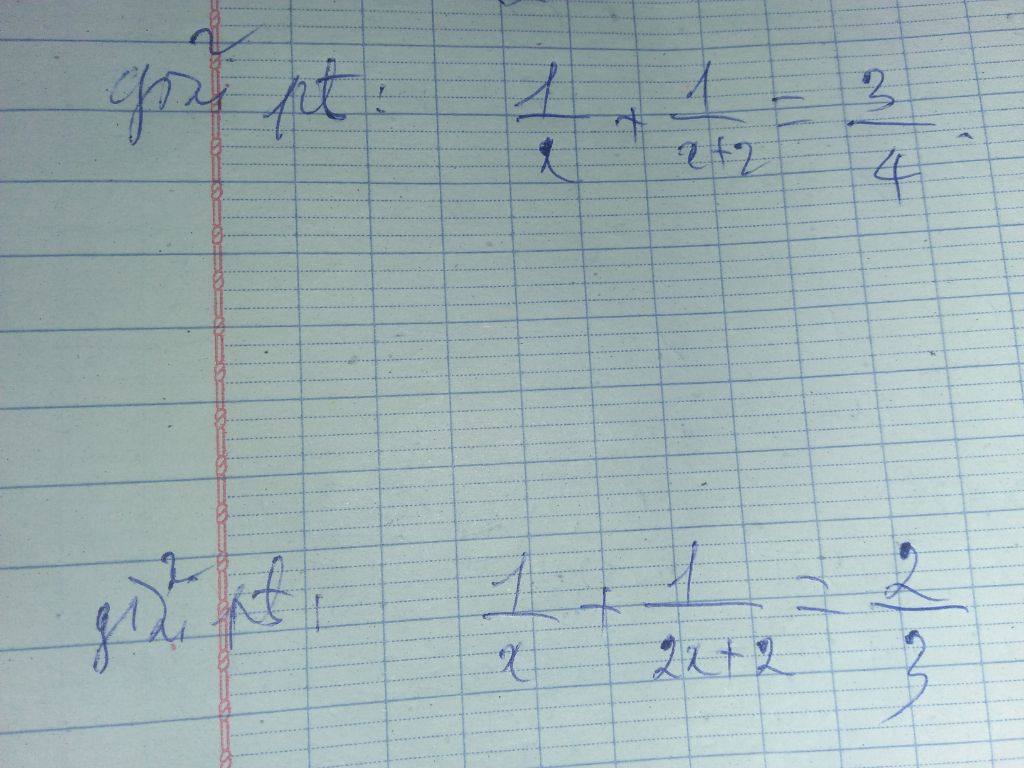 giải pt: 1/x + 1/(x+2) = 3/4.
giải pt: 1/x + 1/(2x+2) = 2/3